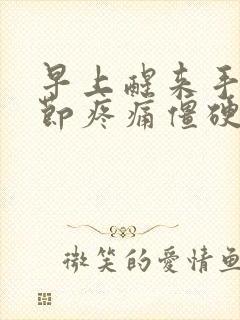 早上醒来手
節疼痛僵硬
微笑的愛情魚